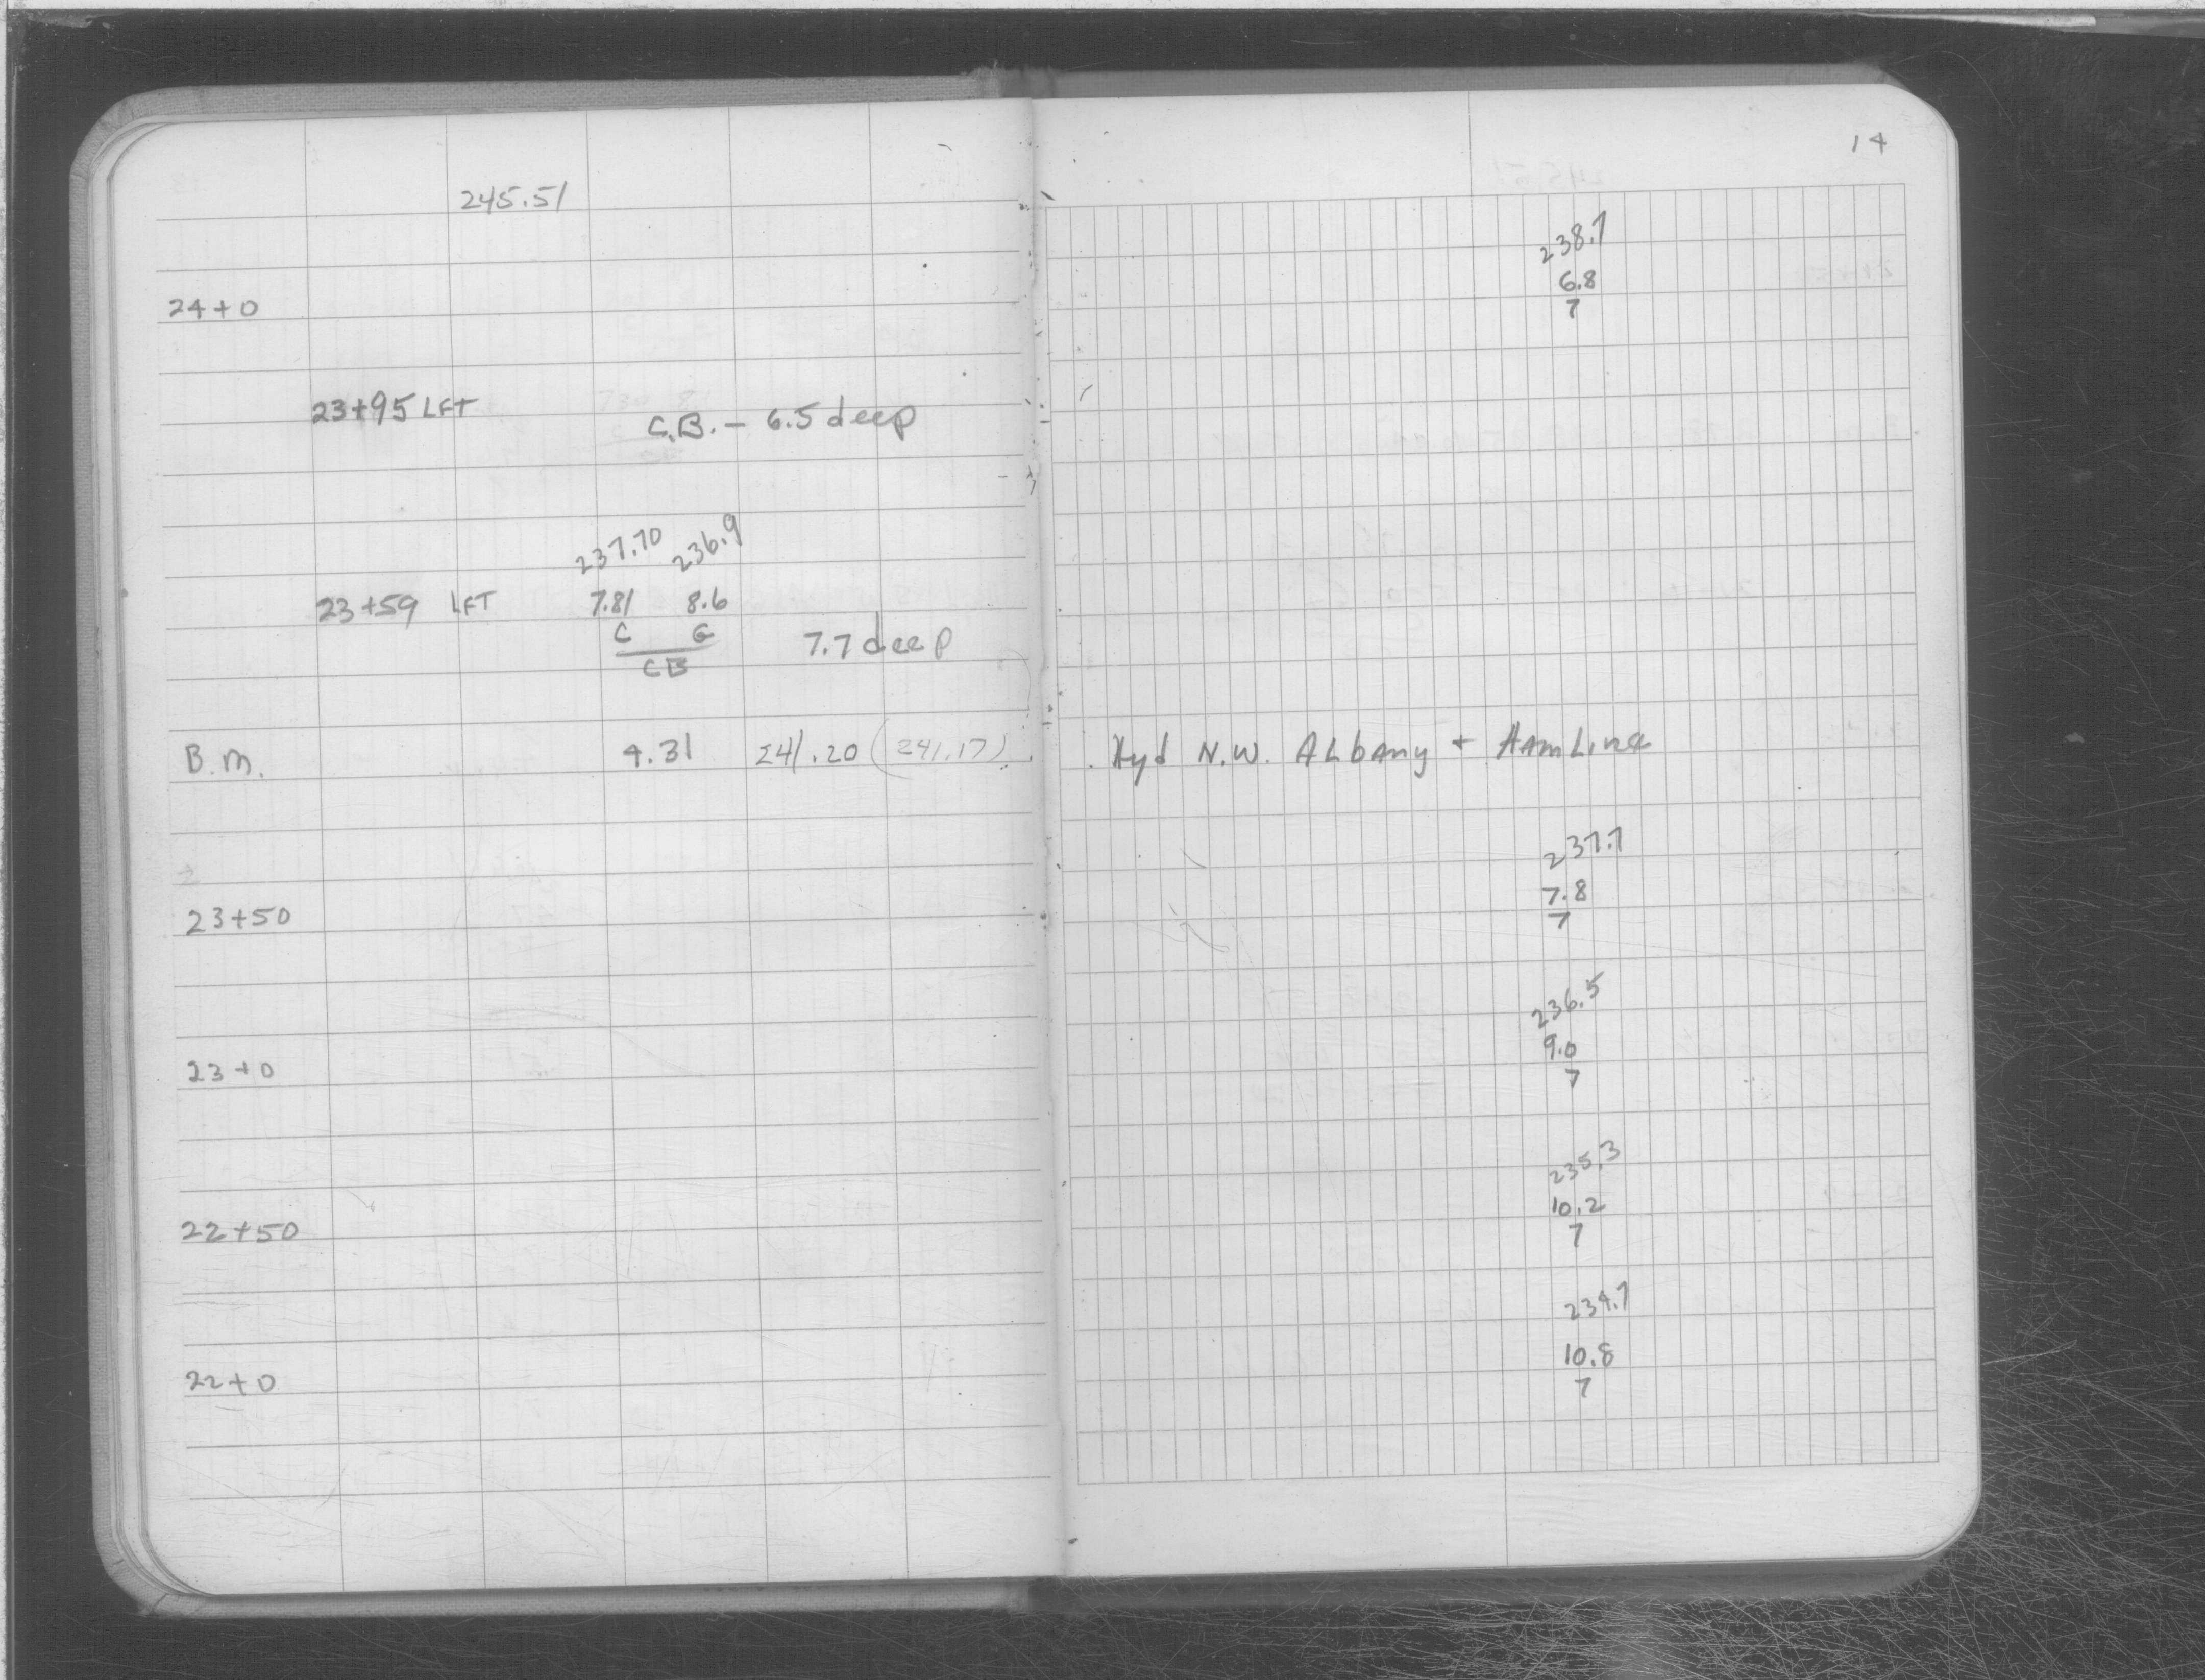 14
245.51
238.7
6.8
24+0
7
23+95 LFT
C.B. - 6.5 deep
237.70 236.9
23+59 LFT 7.81 8.6
C G
7.7 deep
CB
B.M. 4.31 241.20 (241.17) Hyd N.W. Albany + Hamline
237.7
7.8
23+50
7
236.5
9.0
23+0
7
235.3
10.2
22+50
7
234.7
10.8
22+0
7